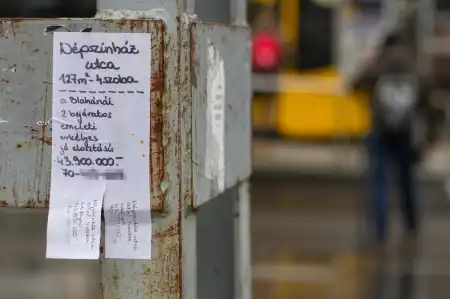 Népszínház
utca
127m²-4szoba
a Blahánál
2 bejáratos
emeleti
erkélyes
jó elosztású
43.900.000.-
70-